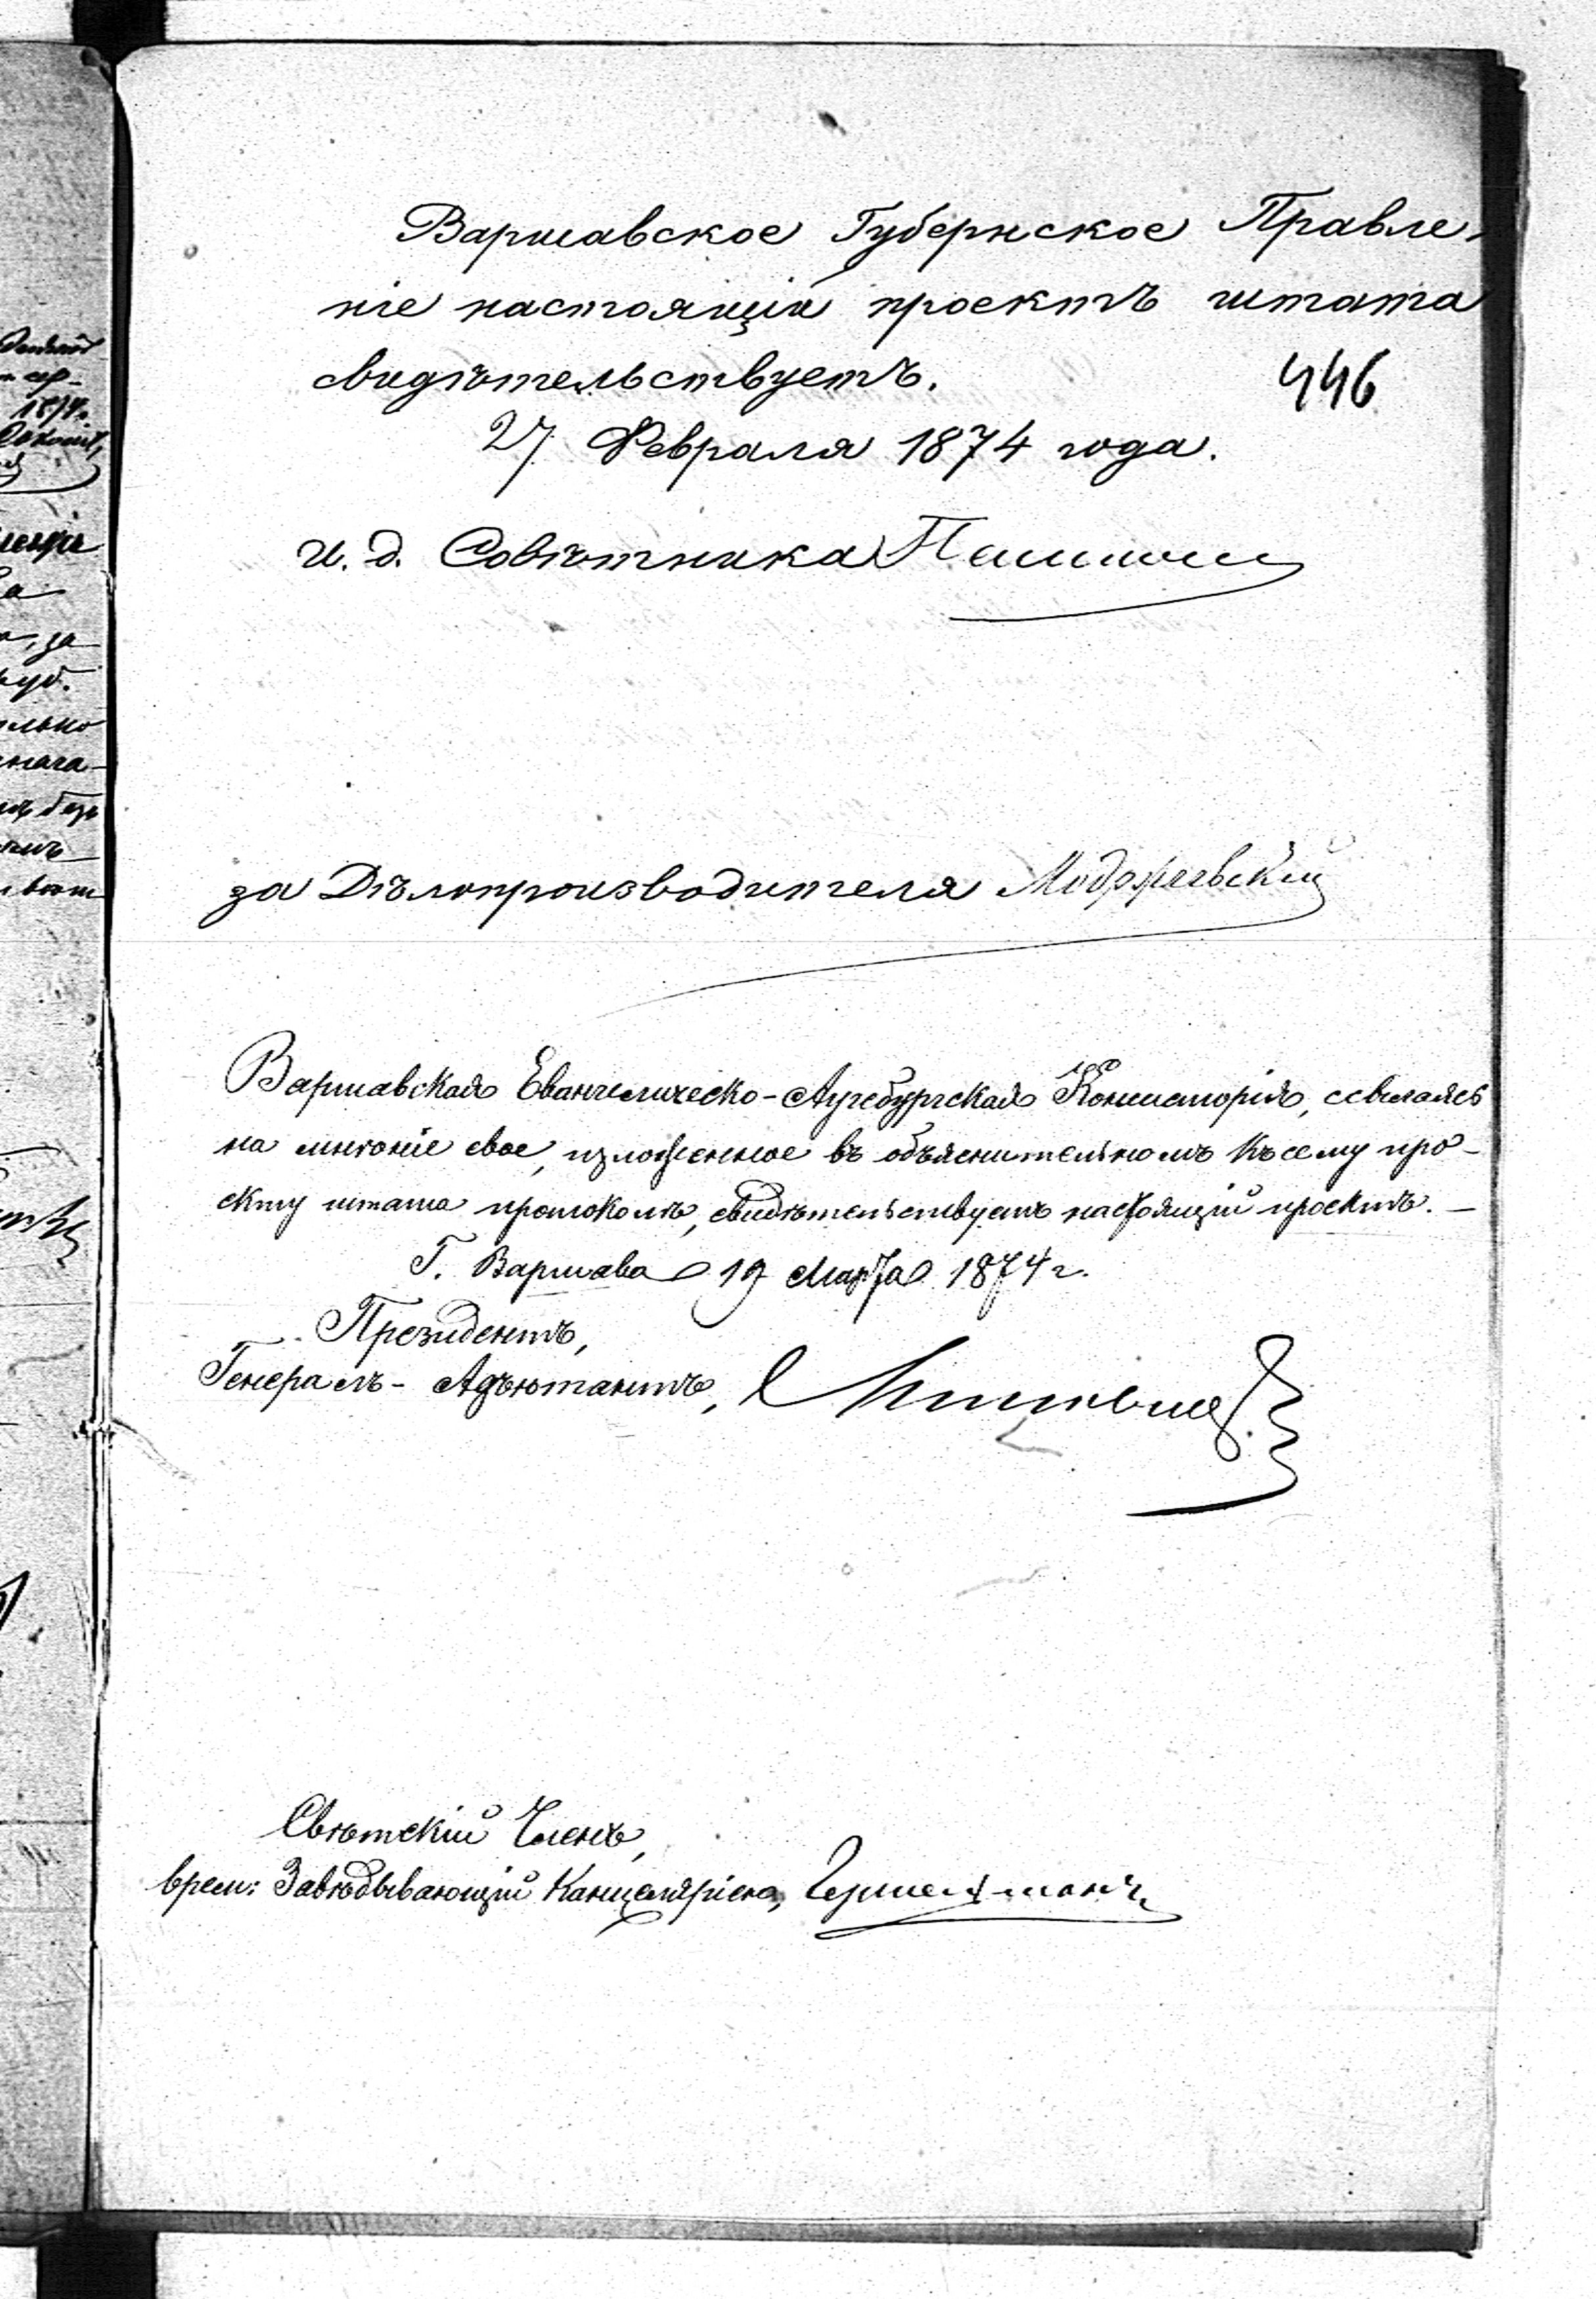 Варшавское Губернское Правле-
ніе настоящій проектъ штата
свидѣтельствуетъ.
446
27 Февраля 1874 года.
и. д. Совѣтника
за Дѣлопроизводителя Моджеевскій
Варшавская Евангелическо-Аугсбургская Консисторія, ссылаясь
на мнѣніе свое, изложенное въ объяснительномъ къ сему про-
екту штата протоколѣ, свидѣтельствуетъ настоящій проектъ. —
Г. Варшава 19 Марта 1874 г.
Президентъ,
Генералъ-Адъютантъ,
Свѣтскій Членъ,
врем: Завѣдывающій Канцеляріею,
за
руб.